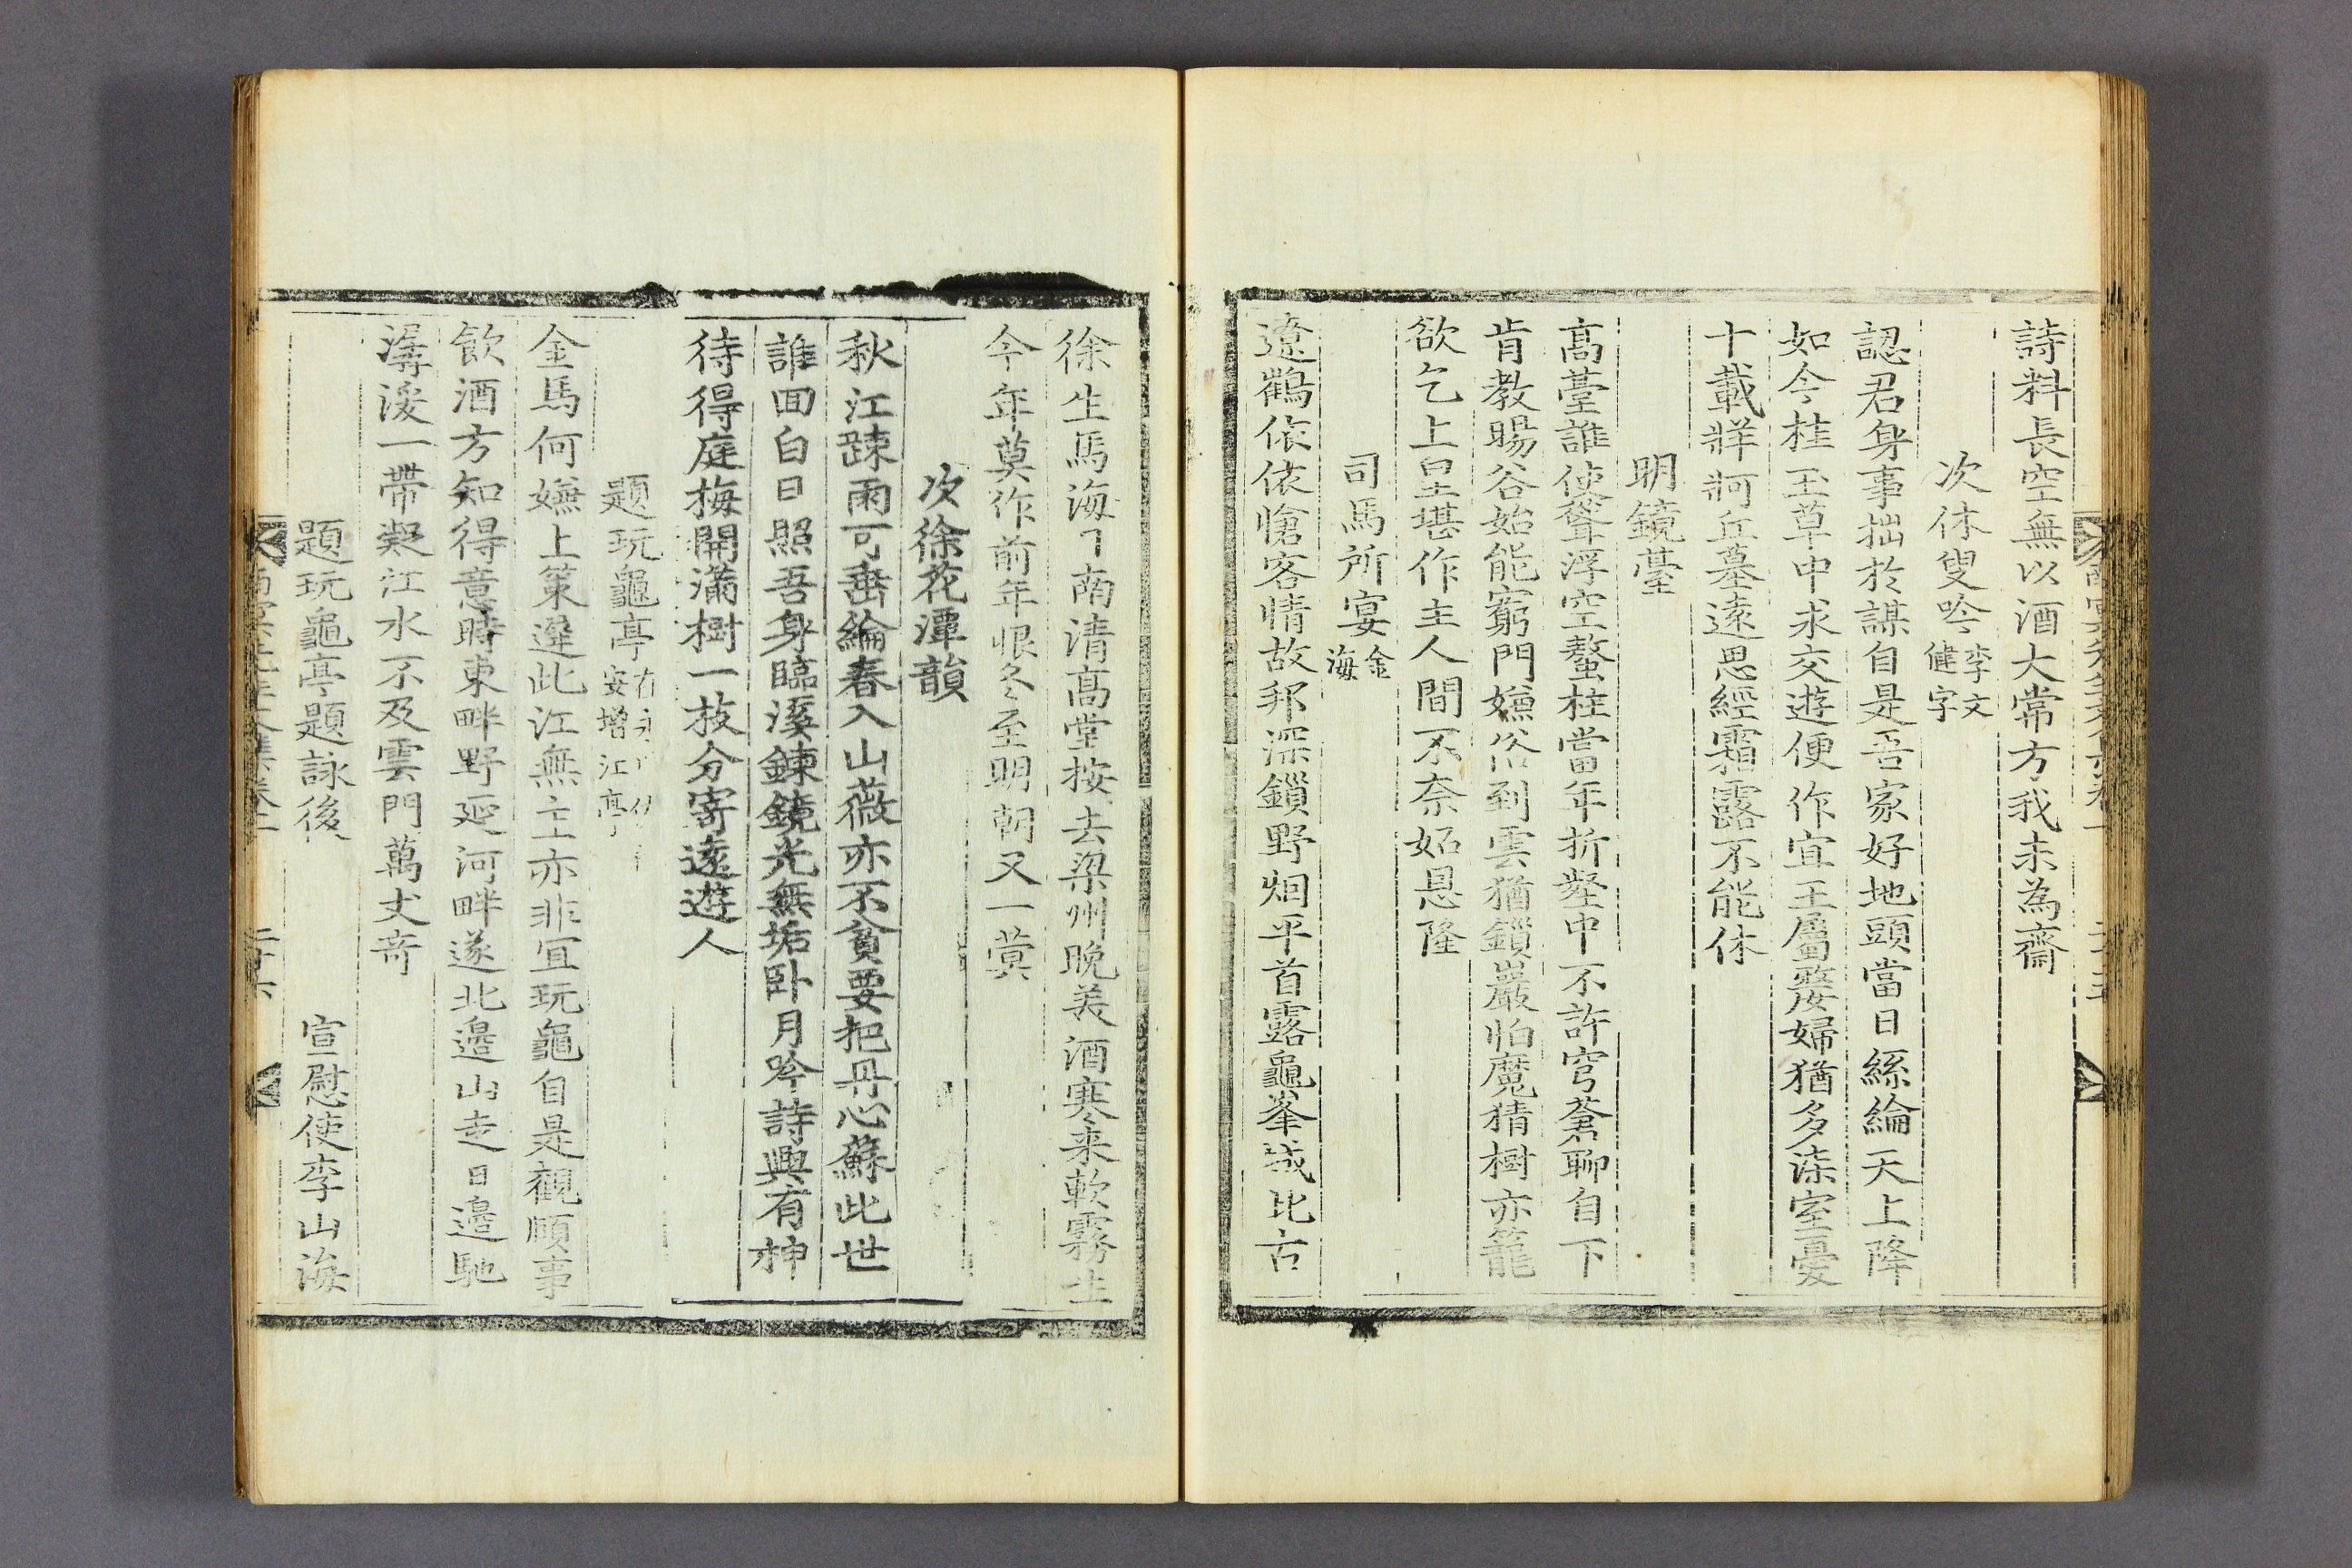 詩料長空無以酒大常方我未為齋
次休叟吟 李文健字
認君身事拙於謀自是吾家好地頭當日絲綸天上降
如今桂玉草中求交遊便作宜王屬嫠婦猶多漆室憂
十載牂牁丘墓遠思經霜露不能休
明鏡臺
高臺誰使聳浮空螯柱當年折壑中不許穹蒼聊自下
肯教暘谷始能窮門嫌俗到雲猶鎖巖怕魔猜樹亦籠
欲乞上皇堪作主人間不奈妬恩隆
司馬所宴 金海
遼鶴依依愴客情故邦深鎖野烟平首露龜峯城比古
徐生馬海南清高堂按去梁州晚美酒寒来軟霧生
今年莫作前年恨冬至明朝又一蓂
次徐花潭韻
秋江踈雨可垂綸春入山薇亦不貧要把丹心蘇此世
誰回白日照吾身臨溪鍊鏡光無垢卧月吟詩興有神
待得庭梅開滿樹一枝分寄遠遊人
題玩龜亭 安增江亭
金馬何嫌上策遲此江無主亦非宜玩龜自是觀頤事
飲酒方知得意時東畔野延河畔遂北邊山走日邊馳
潺湲一帶凝江水不及雲門萬丈奇
題玩龜亭題詠後 宣慰使李山海